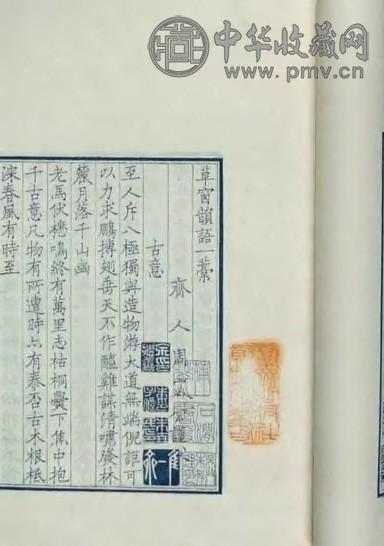 中华收藏网
www.pmv.cn
草窗韻語一藁
齊人周
古意
至人斥八極獨與造物游大道無端倪詎可
以力求鵬摶翅垂天不作醯雞謀清嘯發林
麓月落千山幽
老馬伏櫪鳴終有萬里志枯桐爨下焦中抱
千古意凡物有所遭時亦有泰否古木根柢
深春風有時至